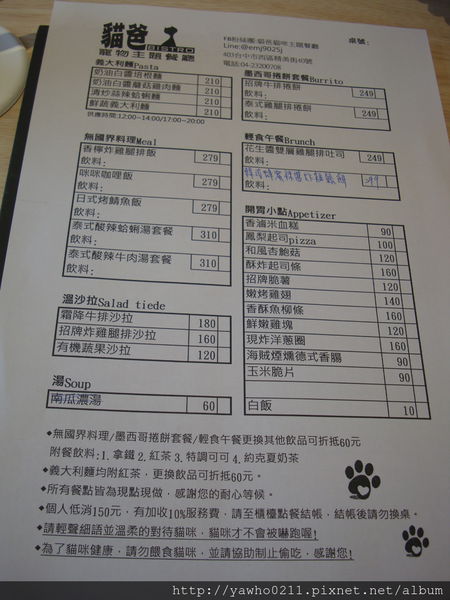 貓爸
BISTRO
寵物主題餐廳
FB粉絲團:貓爸貓咪主題餐廳
Line:@emj9025j
403台中市西區精美街40號
電話:04-23200708
桌號:
義大利麵Pasta
奶油白醬培根麵 210
奶油白醬蘑菇雞肉麵 210
清炒蒜辣蛤蜊麵 210
鮮蔬義大利麵 210
供應時間:12:00~14:00/17:00~20:00
無國界料理Meal
香檸炸雞腿排飯 279
飲料:
咪咪咖哩飯 279
飲料:
日式烤鯖魚飯 279
飲料:
泰式酸辣蛤蜊湯套餐 310
飲料:
泰式酸辣牛肉湯套餐 310
飲料:
溫沙拉Salad tiede
霜降牛排沙拉 180
招牌炸雞腿排沙拉 160
有機蔬果沙拉 120
湯Soup
南瓜濃湯 60
墨西哥捲餅套餐Burrito
招牌牛排捲餅 249
飲料:
泰式雞排捲餅 249
飲料:
輕食午餐Brunch
花生醬雙層雞腿排吐司 249
飲料:
299
開胃小點Appetizer
香滷米血糕 90
鳳梨起司pizza 100
和風杏鮑菇 120
酥炸起司條 160
招牌脆薯 120
嫩烤雞翅 140
香酥魚柳條 160
鮮嫩雞塊 120
現炸洋蔥圈 120
海賊煙燻德式香腸 90
玉米脆片 90
白飯 10
◆無國界料理/墨西哥捲餅套餐/輕食午餐更換其他飲品可折抵60元
附餐飲料:1.拿鐵 2.紅茶 3.特調可可 4.約克夏奶茶
◆義大利麵均附紅茶，更換飲品可折抵60元。
◆所有餐點皆為現點現做，感謝您的耐心等候。
◆個人低消150元，有加收10%服務費，請至櫃檯點餐結帳，結帳後請勿換桌。
◆請輕聲細語並溫柔的對待貓咪，貓咪才不會被嚇跑喔!
◆為了貓咪健康，請勿餵食貓咪，並請協助制止偷吃，感謝您!
http://yawho0211.pixnet.net/album